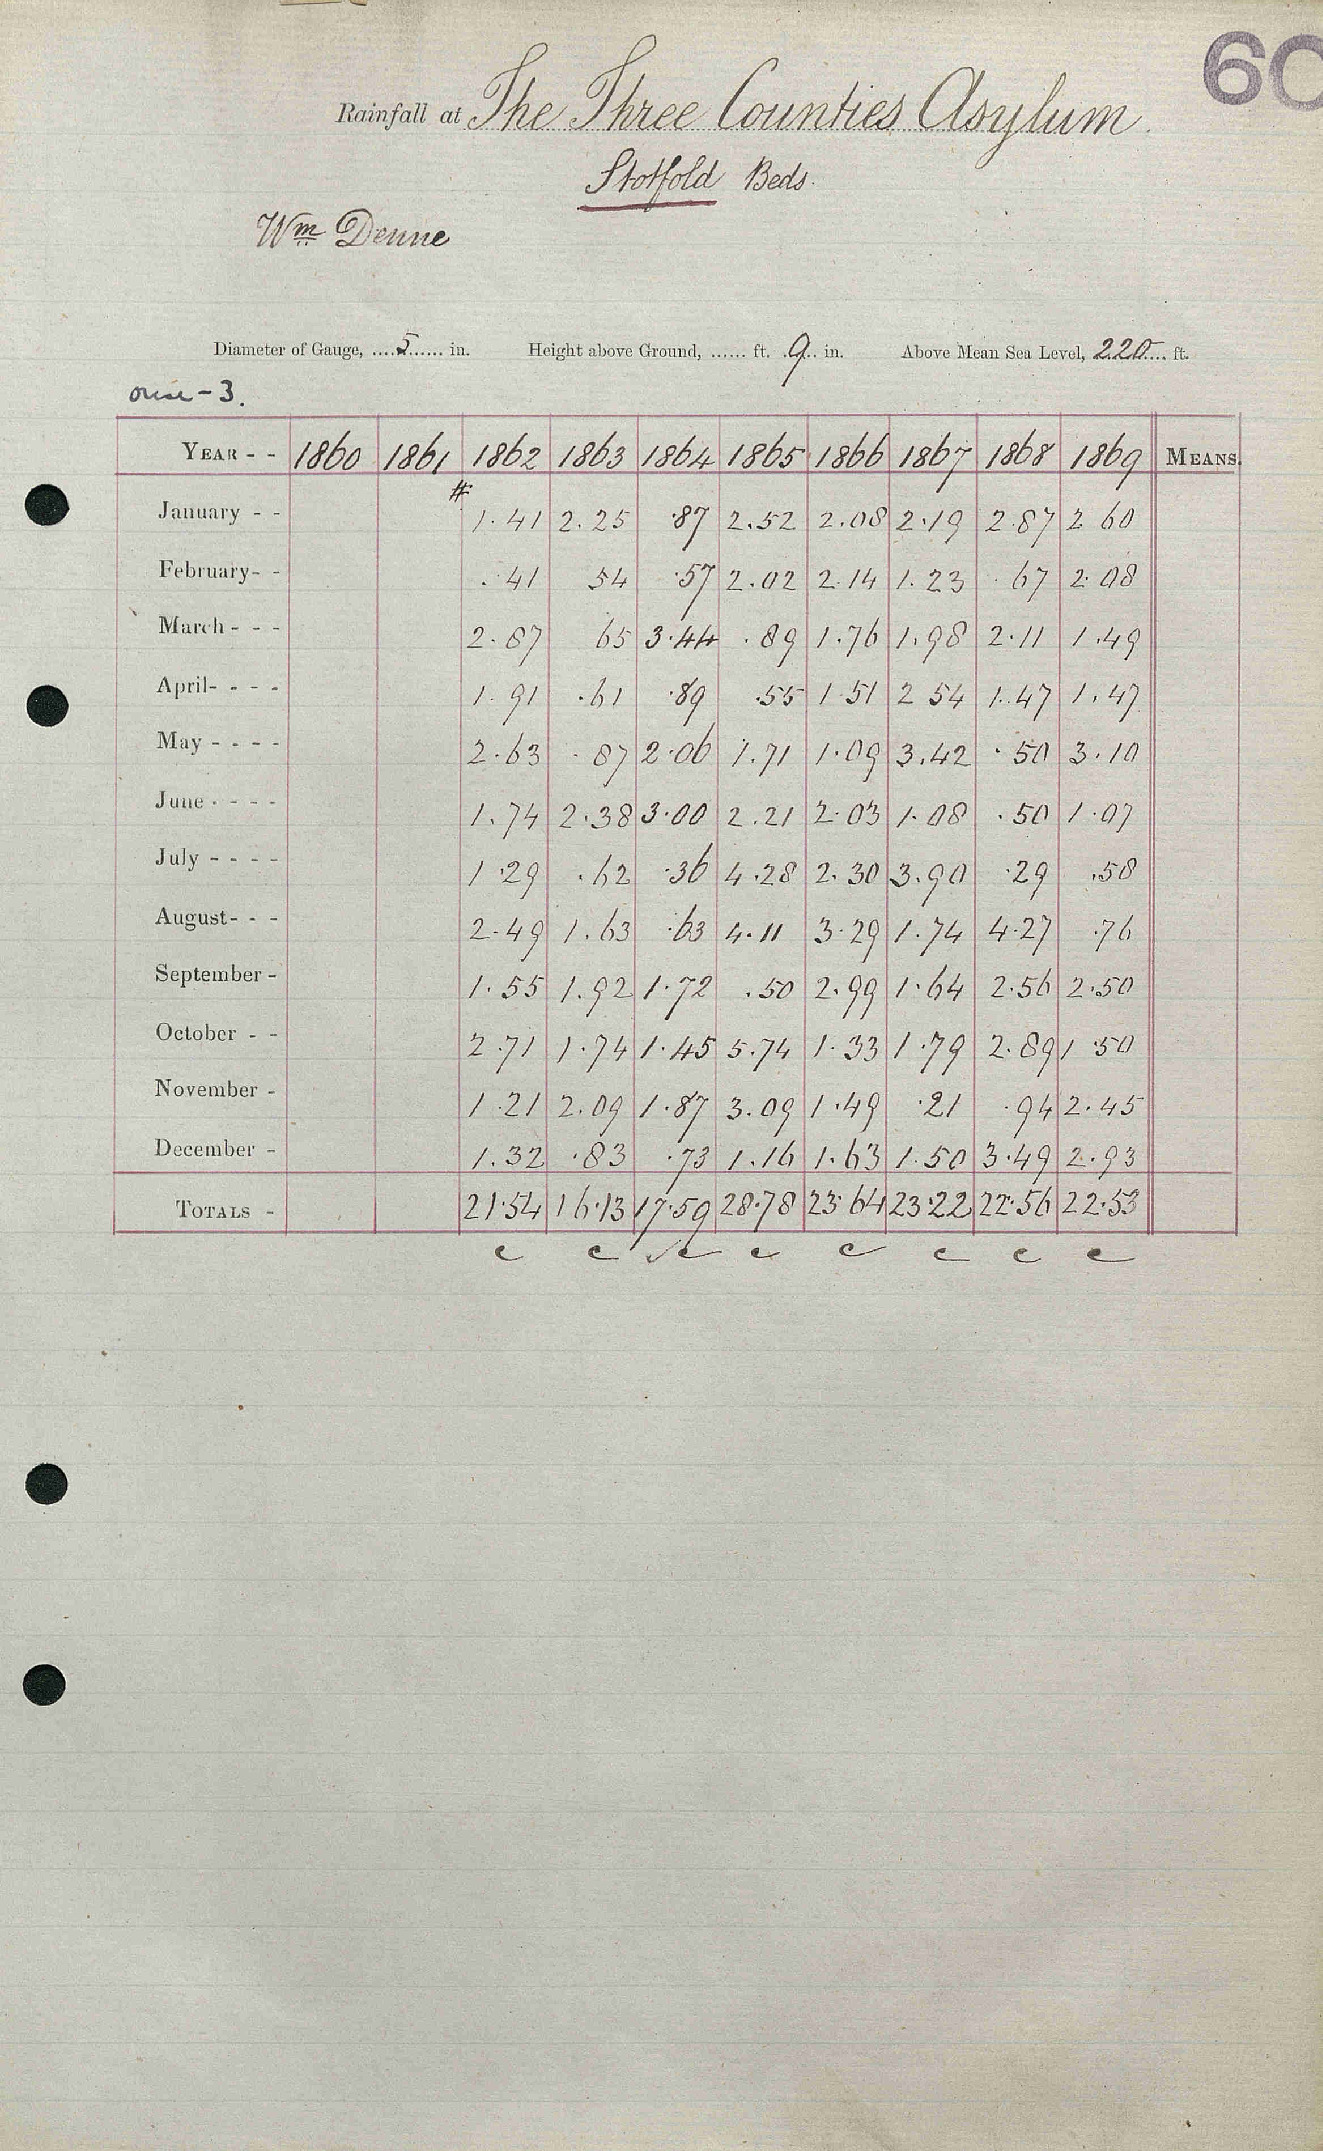 60
Rainfall at The Three Counties Asylum.
Stotfold Beds.
Wm Denne
Diameter of Gauge, ....5...... in. Height above Ground, ...... ft. 9 in. Above Mean Sea Level, 220 ft.
ouse - 3.
YEAR - - 1860 1861 1862 1863 1864 1865 1866 1867 1868 1869 MEANS.
#
January - - 1.41 2.25 .87 2.52 2.08 2.19 2.87 2 60
February- - .41 54 .57 2.02 2.14 1.23 .67 2.08
March - - - 2.87 65 3.44 .89 1.76 1.98 2.11 1.49
April- - - - 1.91 .61 .89 .55 1.51 2 54 1.47 1.47
May - - - - 2.63 .87 2.06 1.71 1.09 3.42 .50 3.10
June - - - - 1.74 2.38 3.00 2.21 2.03 1.08 .50 1.07
July - - - - 1.29 .62 .36 4.28 2.30 3.90 .29 .58
August- - - 2.49 1.63 .63 4.11 3.29 1.74 4.27 .76
September - 1.55 1.92 1.72 .50 2.99 1.64 2.56 2.50
October - - 2.71 1.74 1.45 5.74 1.33 1.79 2.89 1.50
November - 1.21 2.09 1.87 3.09 1.49 .21 .94 2.45
December - 1.32 .83 .73 1.16 1.63 1.50 3.49 2.93
TOTALS - 21.54 16.13 17.59 28.78 23.64 23.22 22.56 22.53
c c c c c c c c